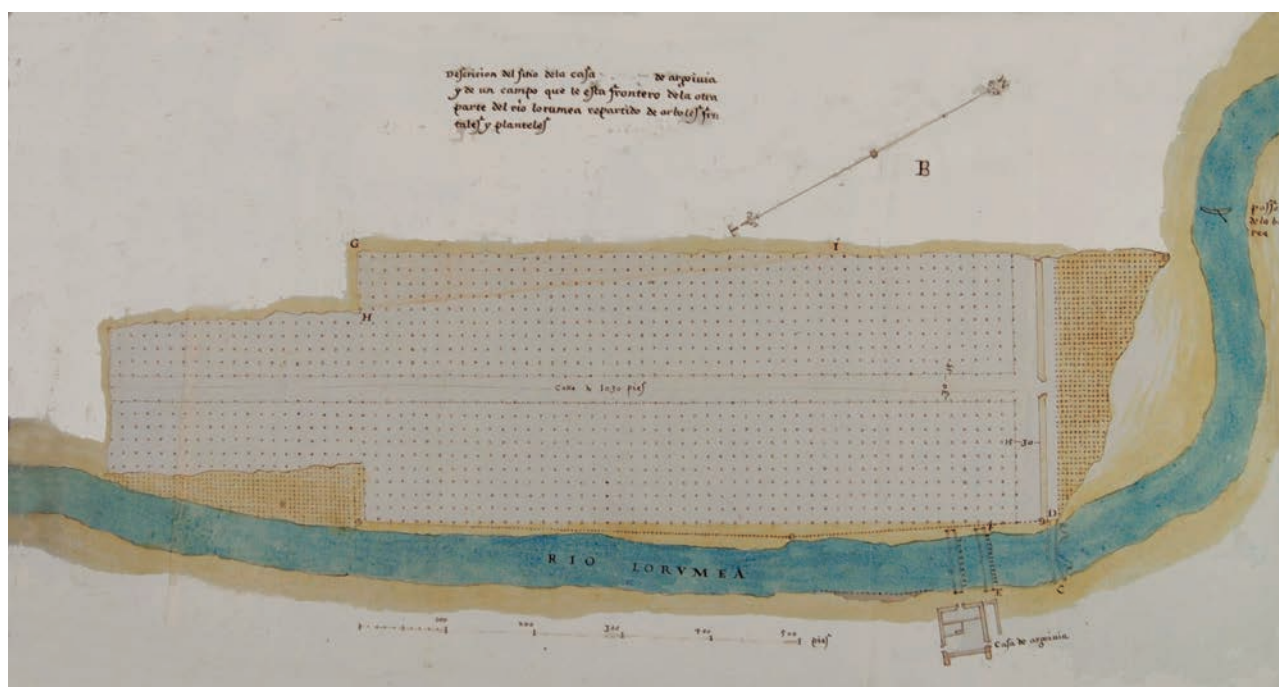 Descricion del sitio dela casa de argoinia
y de un campo que le esta frontero dela otra
parte del rio lorumea repartido de arboles fru
tales y planteles
B
A
G
I
H
Calle de 1030 pies
30
15
15 30
D
RIO LORVMEA
E
C
100 200 300 400 500 pies
Casa de argoinia